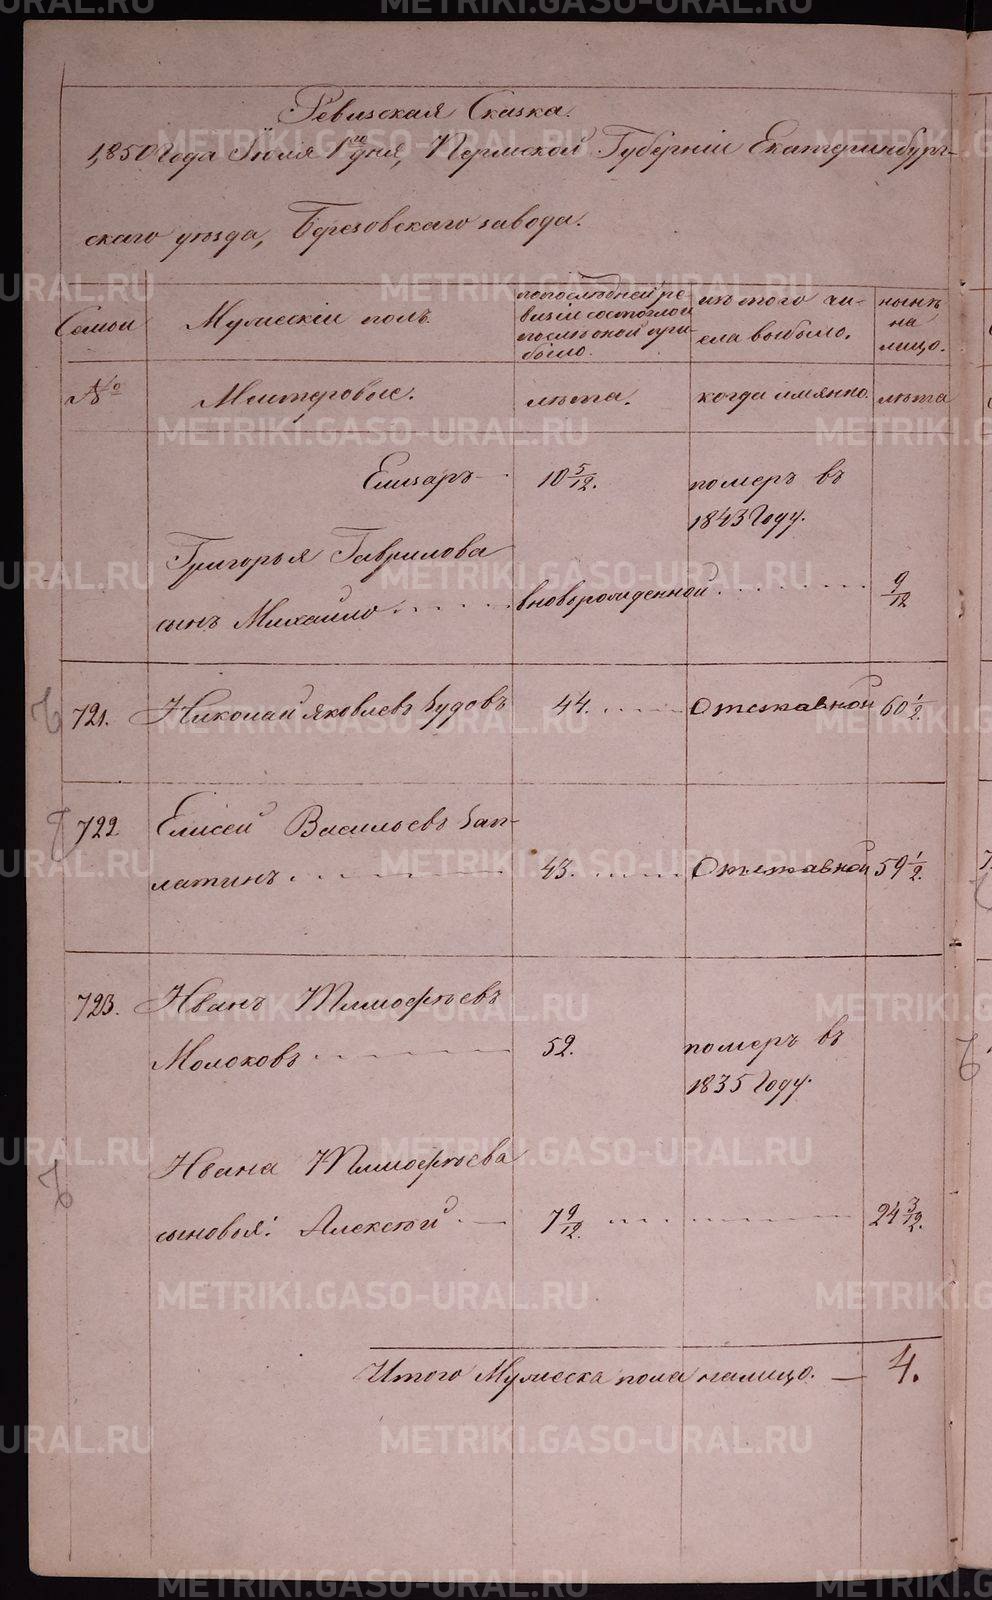 Ревизская Сказка.
1850 года Июля 1го дня, Пермской Губерніи Екатеринбург-
скаго уѣзда, Березовскаго завода.
Семьи
Мужескій полъ.
по послѣдней ре-
визіи состояло и
послѣ оной при-
было.
изъ того чи-
сла выбыло.
нынѣ
на
лицо.
№
Мастеровые.
лѣта.
когда имянно.
лѣта
Елизаръ 10 5/12. померъ въ
1843 Году.
Григорья Гаврилова
сынъ Михайло вноворожденной 9/12
721. Николай Яковлевъ Зудовъ 44. Отставной 60 1/2.
722. Елисей Васильевъ Зап-
латинъ 43. Отставной 59 1/2.
723. Иванъ Тимофѣевъ
Молоковъ 52. померъ въ
1835 Году.
Ивана Тимофѣева
сыновья: Алексѣй 7 9/12. 24 3/12.
Итого Мужеска пола налицо. — 4.
METRIKI.GASO-URAL.RU